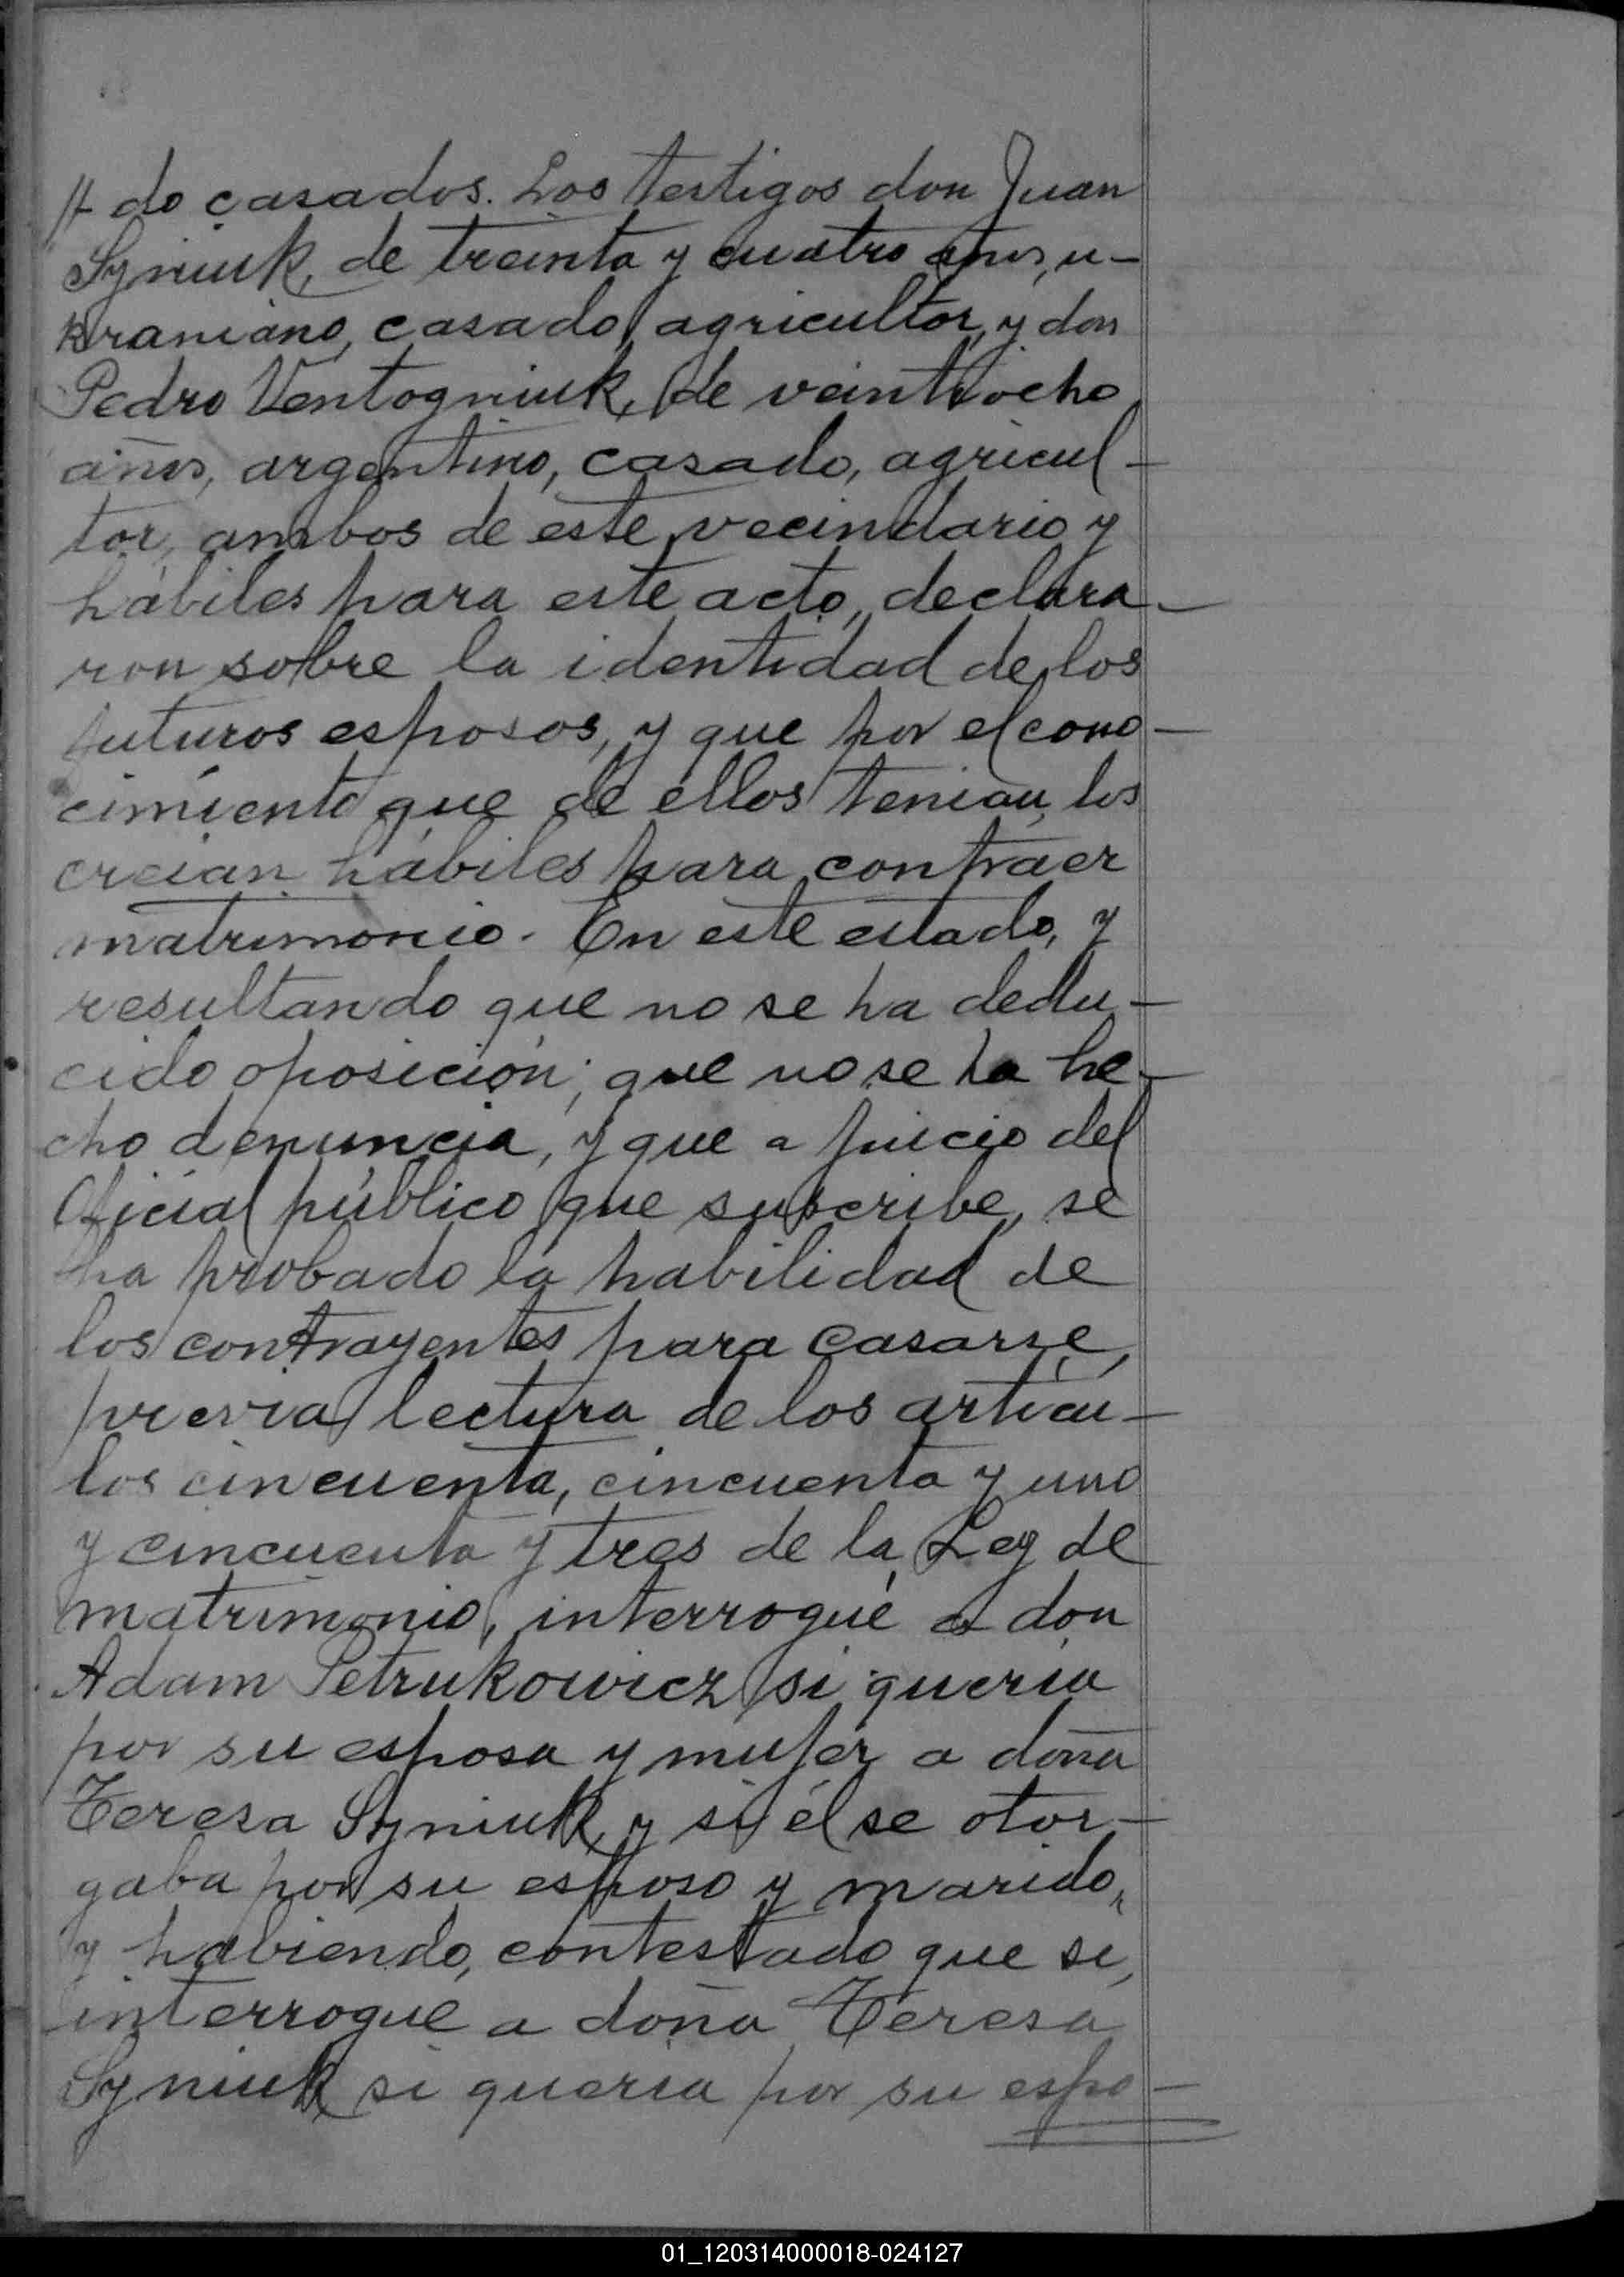 // do casados. Los testigos don Juan
Syniuk, de treinta y cuatro años, u-
kraniano, casado, agricultor, y don
Pedro Ventogniuk, de veintiocho
años, argentino, casado, agricul-
tor, ambos de este vecindario y
hábiles para este acto, declara-
ron sobre la identidad de los
futuros esposos, y que por el cono-
cimiento que de ellos tenian, los
creian hábiles para contraer
matrimonio. En este estado, y
resultando que no se ha dedu-
cido oposición; que no se ha he-
cho denuncia, y que a juicio del
Oficial público que suscribe, se
ha probado la habilidad de
los contrayentes para casarse,
previa lectura de los artícu-
los cincuenta, cincuenta y uno
y cincuenta y tres de la Ley de
matrimonio, interrogué a don
Adam Petrukowicz si queria
por su esposa y mujer a doña
Teresa Syniuk, y si él se otor-
gaba por su esposo y marido,
y habiendo, contestado que si,
interrogue a doña Teresa
Syniuk si queria por su espo-
01_120314000018-024127